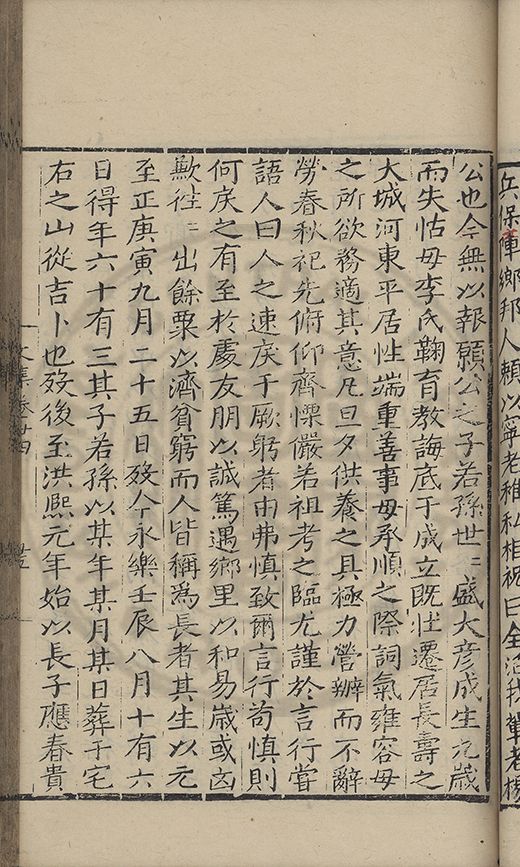 兵保障鄉邦人賴以寧老稚私相祝曰全活我輩者楊
公也今無以報願公之子若孫世〻盛大彥成生九歲
而失怙母李氏鞠育教誨底于成立既壯遷居長壽之
大城河東平居性端重善事母承順之際詞氣雍容母
之所欲務適其意凡旦夕供養之具極力營辦而不辭
勞春秋祀先俯仰齊慄儼若祖考之臨尤謹於言行嘗
語人曰人之速戾于厥躬者由弗慎致爾言行苟慎則
何戾之有至於處友朋以誠篤遇鄉里以和易歲或凶
歉往〻出餘粟以濟貧窮而人皆稱爲長者其生以元
至正庚寅九月二十五日歿今永樂壬辰八月十有六
日得年六十有三其子若孫以其年某月某日葬于宅
右之山從吉卜也歿後至洪熙元年始以長子應春貴
文集卷